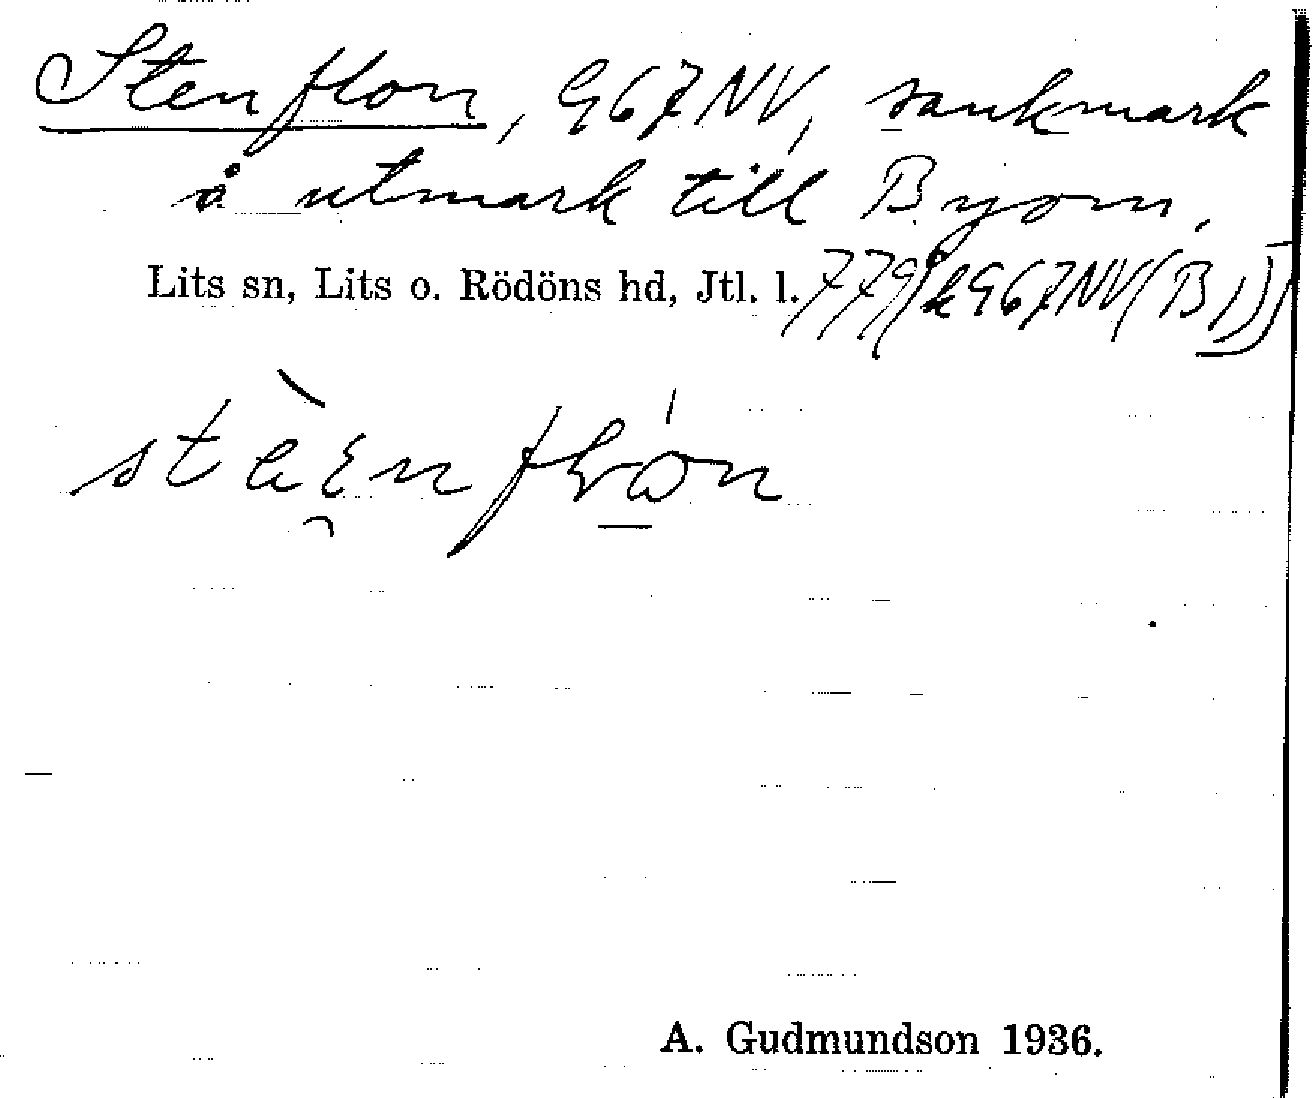 Stenflon, 967NV, sankmark
å utmark till Byom.
Lits sn, Lits o. Rödöns hd, Jtl. l. 779
A. Gudmundson 1936.